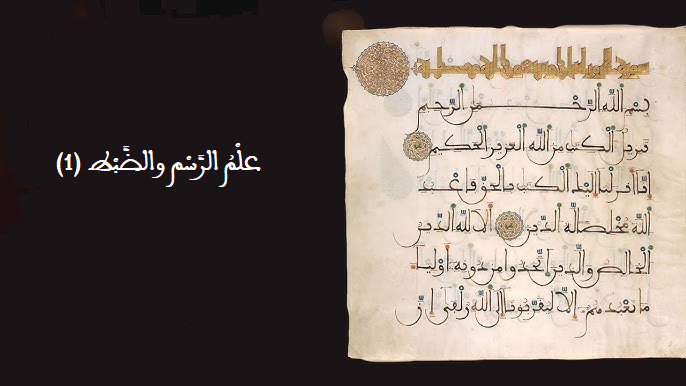 عِلْمُ الرَّسْمِ والضَّبْطِ (1)
بسم الله الرحمن الرحيم
تنزيل الكتب من الله العزيز الحكيم
إنا أنزلنا إليك الكتب بالحق فاعبد
الله مخلصا له الدين ألا لله الدين
الخالص والذين اتخذوا من دونه أوليا
ما نعبدهم إلا ليقربونا إلى الله زلفى إن